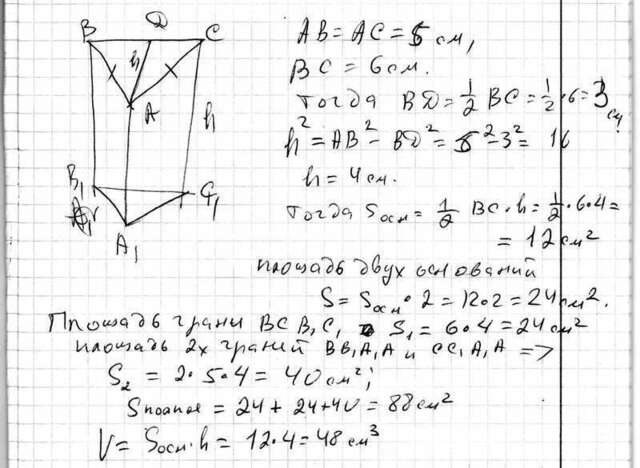 B D C
h
A
h
B₁
C₁
A₁
AB = AC = 5 см,
BC = 6 см.
Тогда BD = 1/2 BC = 1/2 · 6 = 3 см
h² = AB² - BD² = 5² - 3² = 16
h = 4 см.
Тогда Sосн = 1/2 BC · h = 1/2 · 6 · 4 =
= 12 см²
площадь двух оснований
S = Sосн · 2 = 12 · 2 = 24 см².
Площадь грани BCB₁C₁ S₁ = 6 · 4 = 24 см²
площадь 2х граней BB₁A₁A и CC₁A₁A =>
S₂ = 2 · 5 · 4 = 40 см²;
Sполное = 24 + 24 + 40 = 88 см²
V = Sосн · h = 12 · 4 = 48 см³